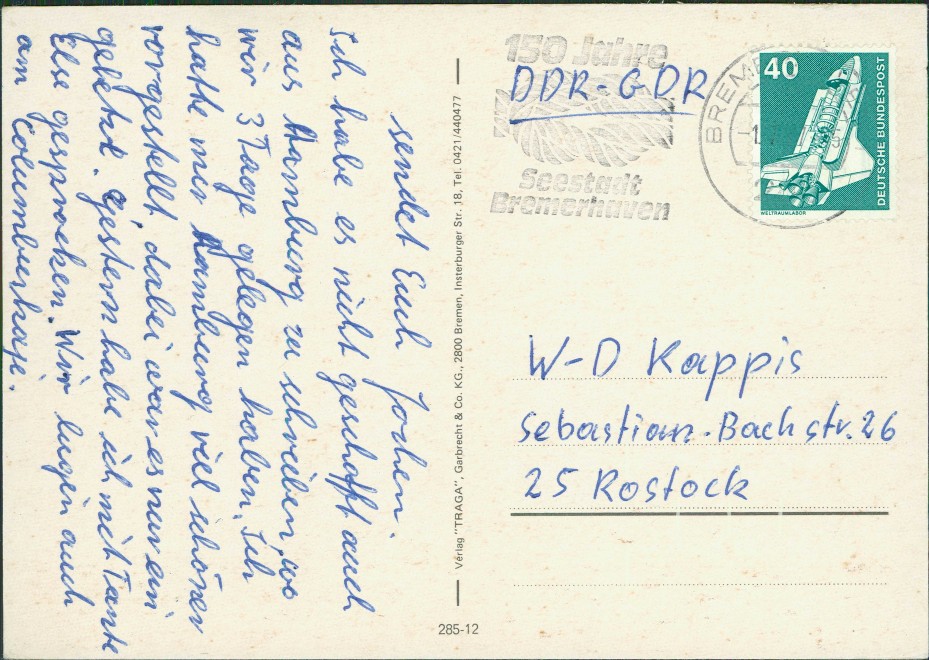 sendet Euch Jochen.
Ich habe es nicht geschafft auch
aus Hamburg zu schreiben, wo
wir 3 Tage gelegen haben. Ich
hatte mir Hamburg viel schöner
vorgestellt, dabei war es nur ein
Gestern habe ich mit Tante
Else gesprochen. Wir liegen auch
am Columbuskaje.
Verlag "TRAGA", Garbrecht & Co. KG., 2800 Bremen, Insterburger Str. 18, Tel. 0421/440477
285-12
150 Jahre
Seestadt
Bremerhaven
DDR-GDR
BREME
40
DEUTSCHE BUNDESPOST
WELTRAUMLABOR
W-D Kappis
Sebastian-Bach str. 26
25 Rostock